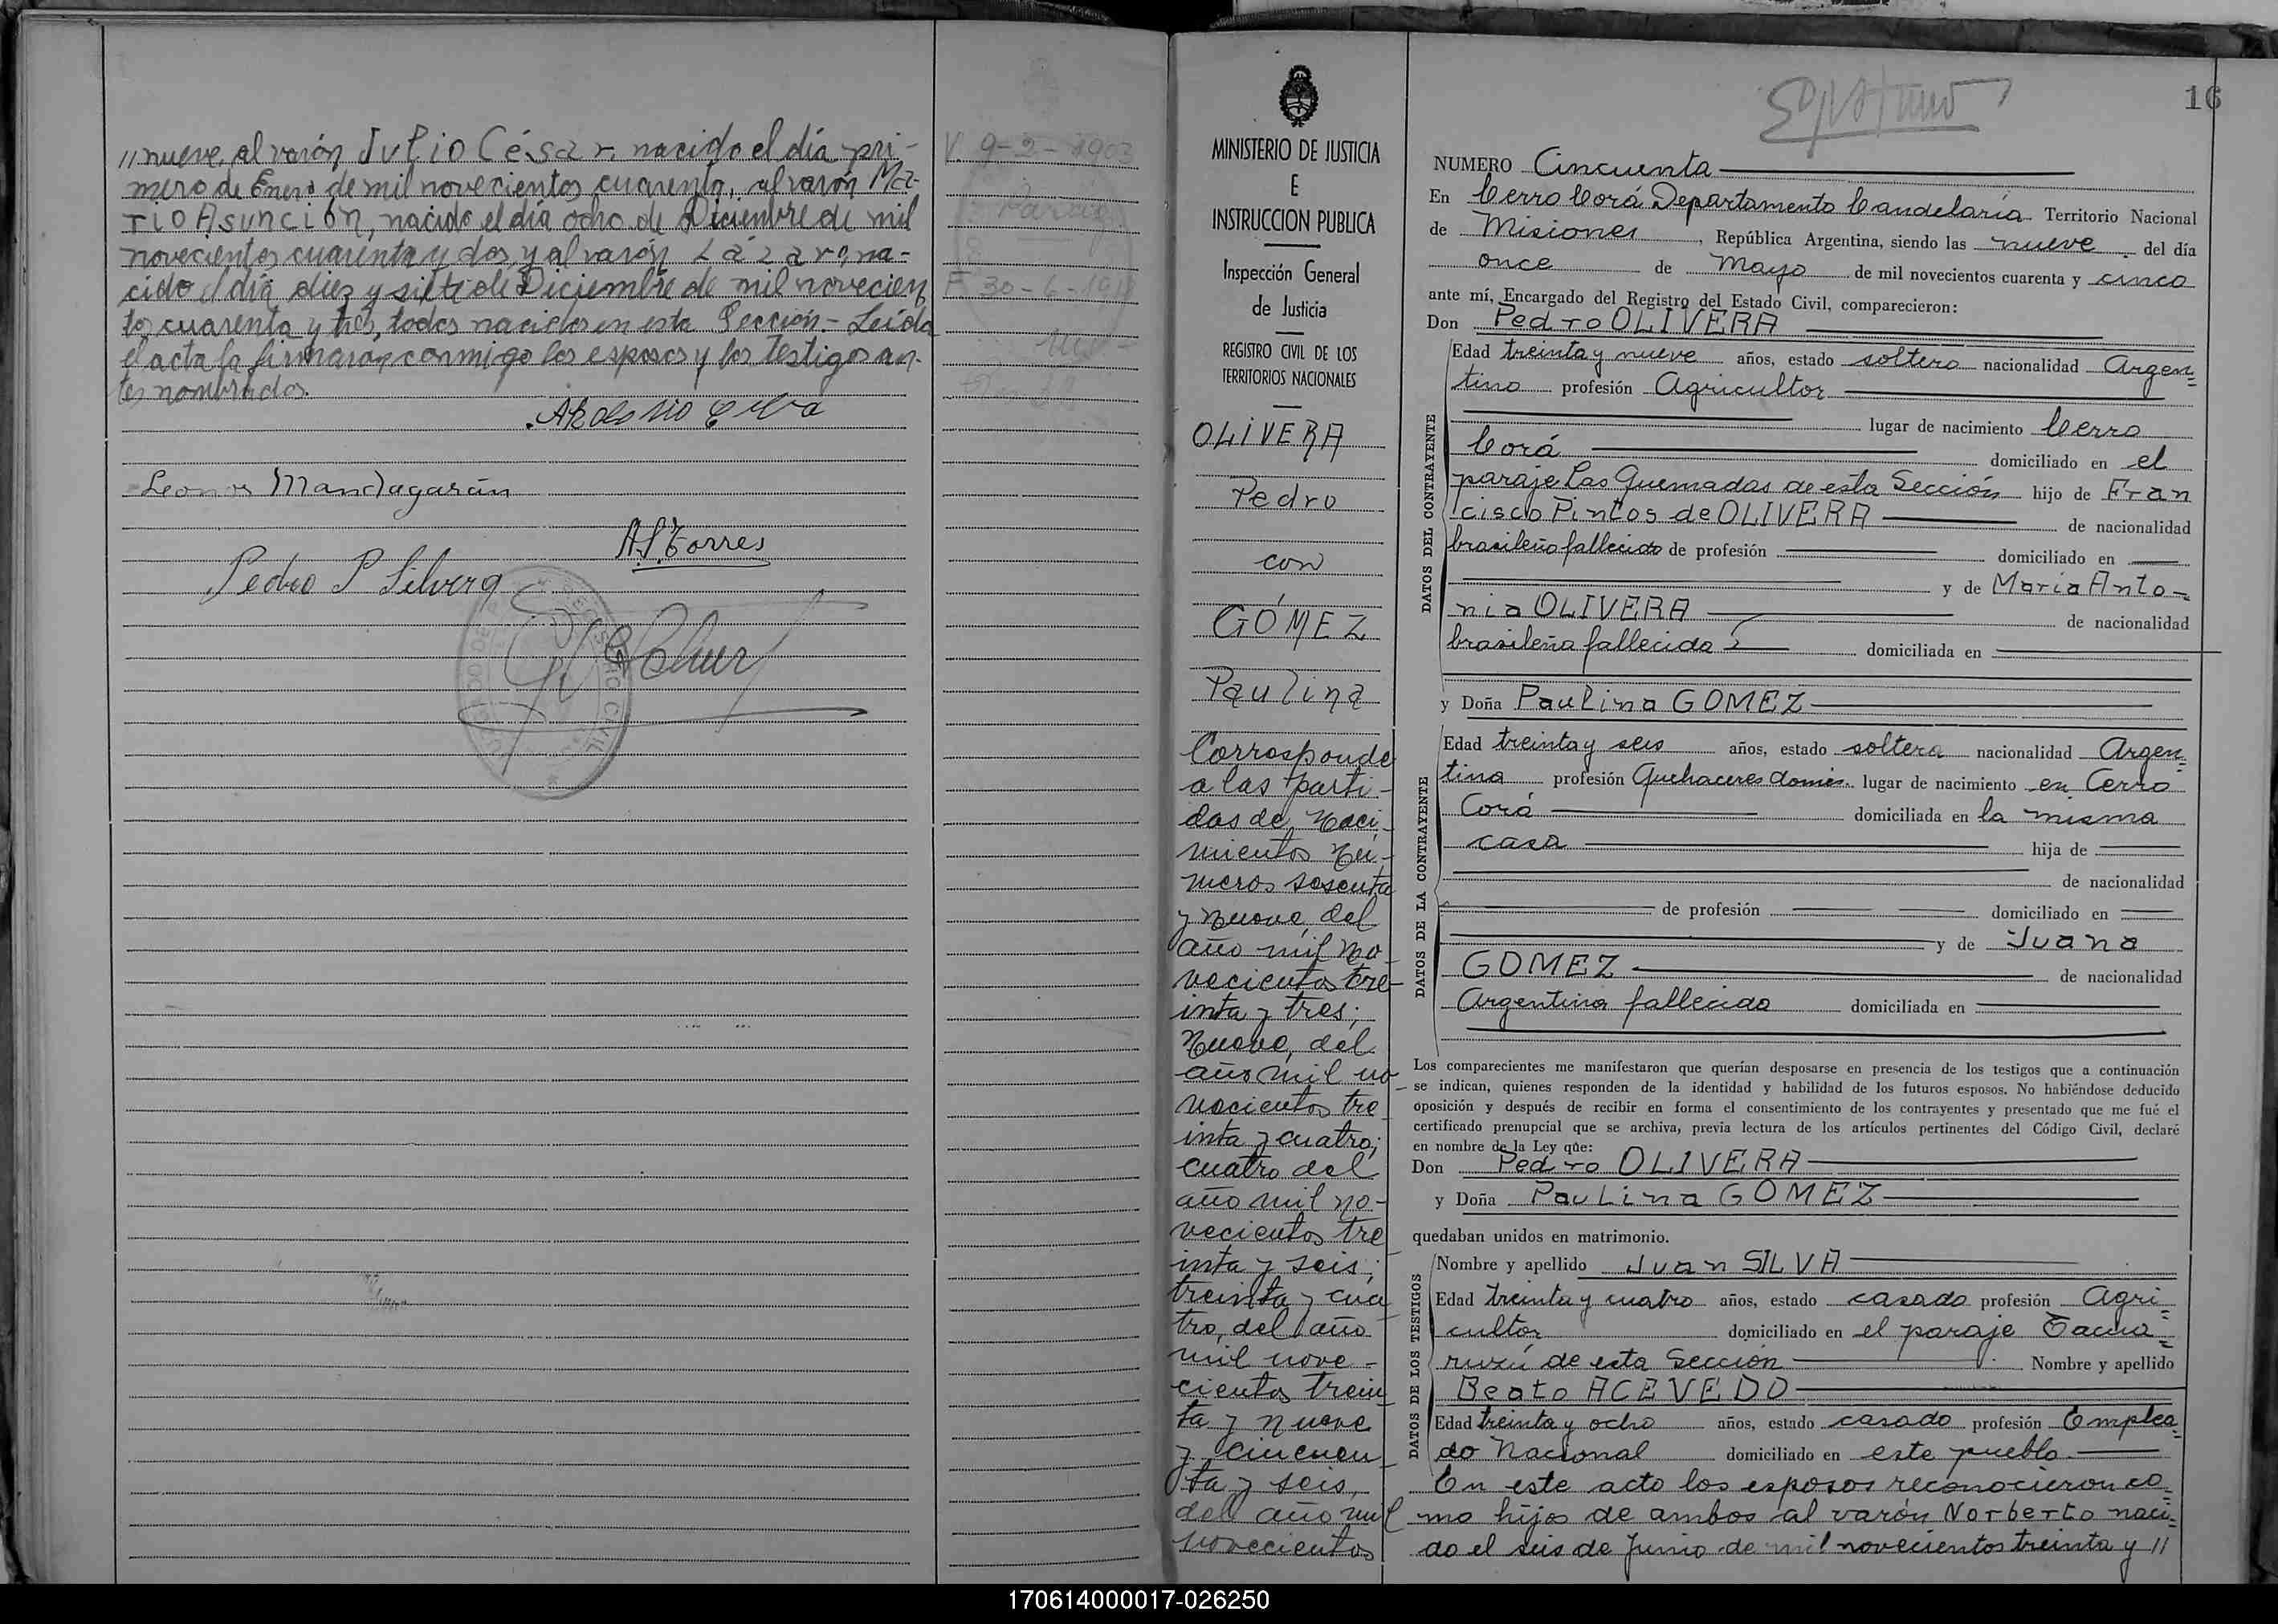 //nueve, al varón Julio César, nacido el día pri-
mero de Enero de mil novecientos cuarenta, al varón Ma-
rio Asunción, nacido el día ocho de Diciembre de mil
novecientos cuarenta y dos, y al varón Lázaro, na-
cido el día diez y siete de Diciembre de mil novecien
tos cuarenta y tres, todos nacidos en esta Sección.- Leída
el acta la firmaron conmigo los esposos y los testigos an-
tes nombrados.
Leonor Mandagarán
A.S. Torres
Pedro P Silvera
V. 9-2-1903
F. 30-6-19
MINISTERIO DE JUSTICIA
E
INSTRUCCION PUBLICA
Inspección General
de Justicia
REGISTRO CIVIL DE LOS
TERRITORIOS NACIONALES
OLIVERA
Pedro
con
GÓMEZ
Paulina
Corresponde
a las parti-
das de Naci-
mientos Nú-
meros sesenta
y nueve, del
año mil no-
vecientos tre-
inta y tres;
Nueve, del
año mil no-
vecientos tre
inta y cuatro;
cuatro del
año mil no-
vecientos tre
inta y seis;
treinta y cua
tro, del año
mil nove-
cientos trein
ta y nueve
y cincuen
ta y seis,
del año mil
novecientos
16
NUMERO Cincuenta
En Cerro Corá Departamento Candelaria Territorio Nacional
de Misiones, República Argentina, siendo las nueve del día
once de Mayo de mil novecientos cuarenta y cinco
ante mí, Encargado del Registro del Estado Civil, comparecieron:
Don Pedro OLIVERA
DATOS DEL CONTRAYENTE
Edad treinta y nueve años, estado soltero nacionalidad Argen=
tino profesión Agricultor
lugar de nacimiento Cerro
Corá domiciliado en el
paraje Las Quemadas de esta Sección hijo de Fran
cisco Pintos de OLIVERA de nacionalidad
brasileño fallecido de profesión domiciliado en
y de Maria Anto-
nia OLIVERA de nacionalidad
brasileña fallecida domiciliada en
y Doña Paulina GOMEZ
DATOS DE LA CONTRAYENTE
Edad treinta y seis años, estado soltera nacionalidad Argen=
tina profesión Quehaceres domés. lugar de nacimiento en Cerro
Corá domiciliada en la misma
casa hija de
de nacionalidad
de profesión domiciliado en
y de Juana
GOMEZ de nacionalidad
Argentina fallecida domiciliada en
Los comparecientes me manifestaron que querían desposarse en presencia de los testigos que a continuación
se indican, quienes responden de la identidad y habilidad de los futuros esposos. No habiéndose deducido
oposición y después de recibir en forma el consentimiento de los contrayentes y presentado que me fué el
certificado prenupcial que se archiva, previa lectura de los artículos pertinentes del Código Civil, declaré
en nombre de la Ley que:
Don Pedro OLIVERA
y Doña Paulina GOMEZ
quedaban unidos en matrimonio.
DATOS DE LOS TESTIGOS
Nombre y apellido Juan SILVA
Edad treinta y cuatro años, estado casado profesión Agri=
cultor domiciliado en el paraje Tacua=
ruzú de esta Sección Nombre y apellido
Beato ACEVEDO
Edad treinta y ocho años, estado casado profesión Emplea=
do Nacional domiciliado en este pueblo.
En este acto los esposos reconocieron co=
mo hijos de ambos al varón Norberto naci=
do el seis de Junio de mil novecientos treinta y //
170614000017-026250